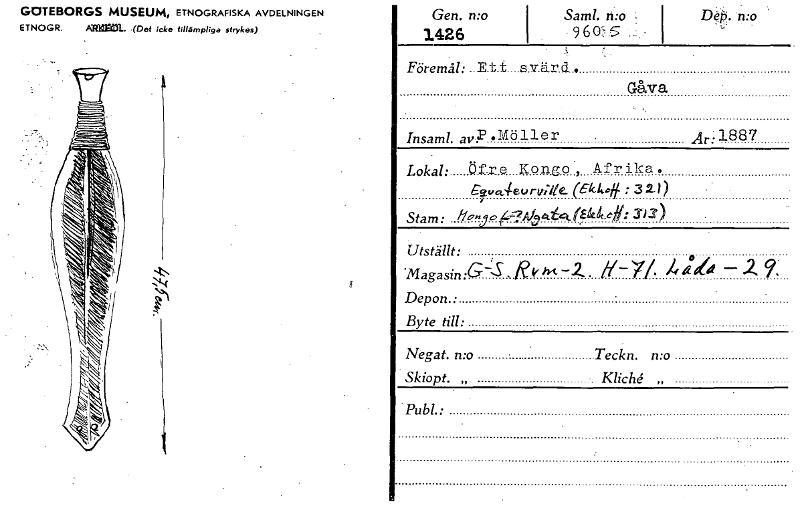 GÖTEBORGS MUSEUM, ETNOGRAFISKA AVDELNINGEN
ETNOGR. ARKEOL. (Det icke tillämpliga strykes)
47,5 cm.
Gen. n:o Saml. n:o Dep. n:o
1426 9605
Föremål: Ett svärd.
Gåva
Insaml. av: P.Möller År: 1887
Lokal: Öfre Kongo, Afrika.
Equateurville (Ekhoff: 321)
Stam: Mongo Ngata (Ekhoff: 313)
Utställt:
Magasin: G-S. Rvm-2. H-71. Låda - 29.
Depon.:
Byte till:
Negat. n:o Teckn. n:o
Skiopt. „ Kliché „
Publ.: